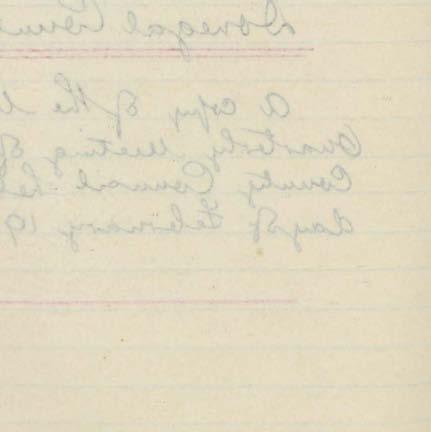 Donegal Coun
A copy of the
Quarterly Meeting of
County Council hel
day of February 19